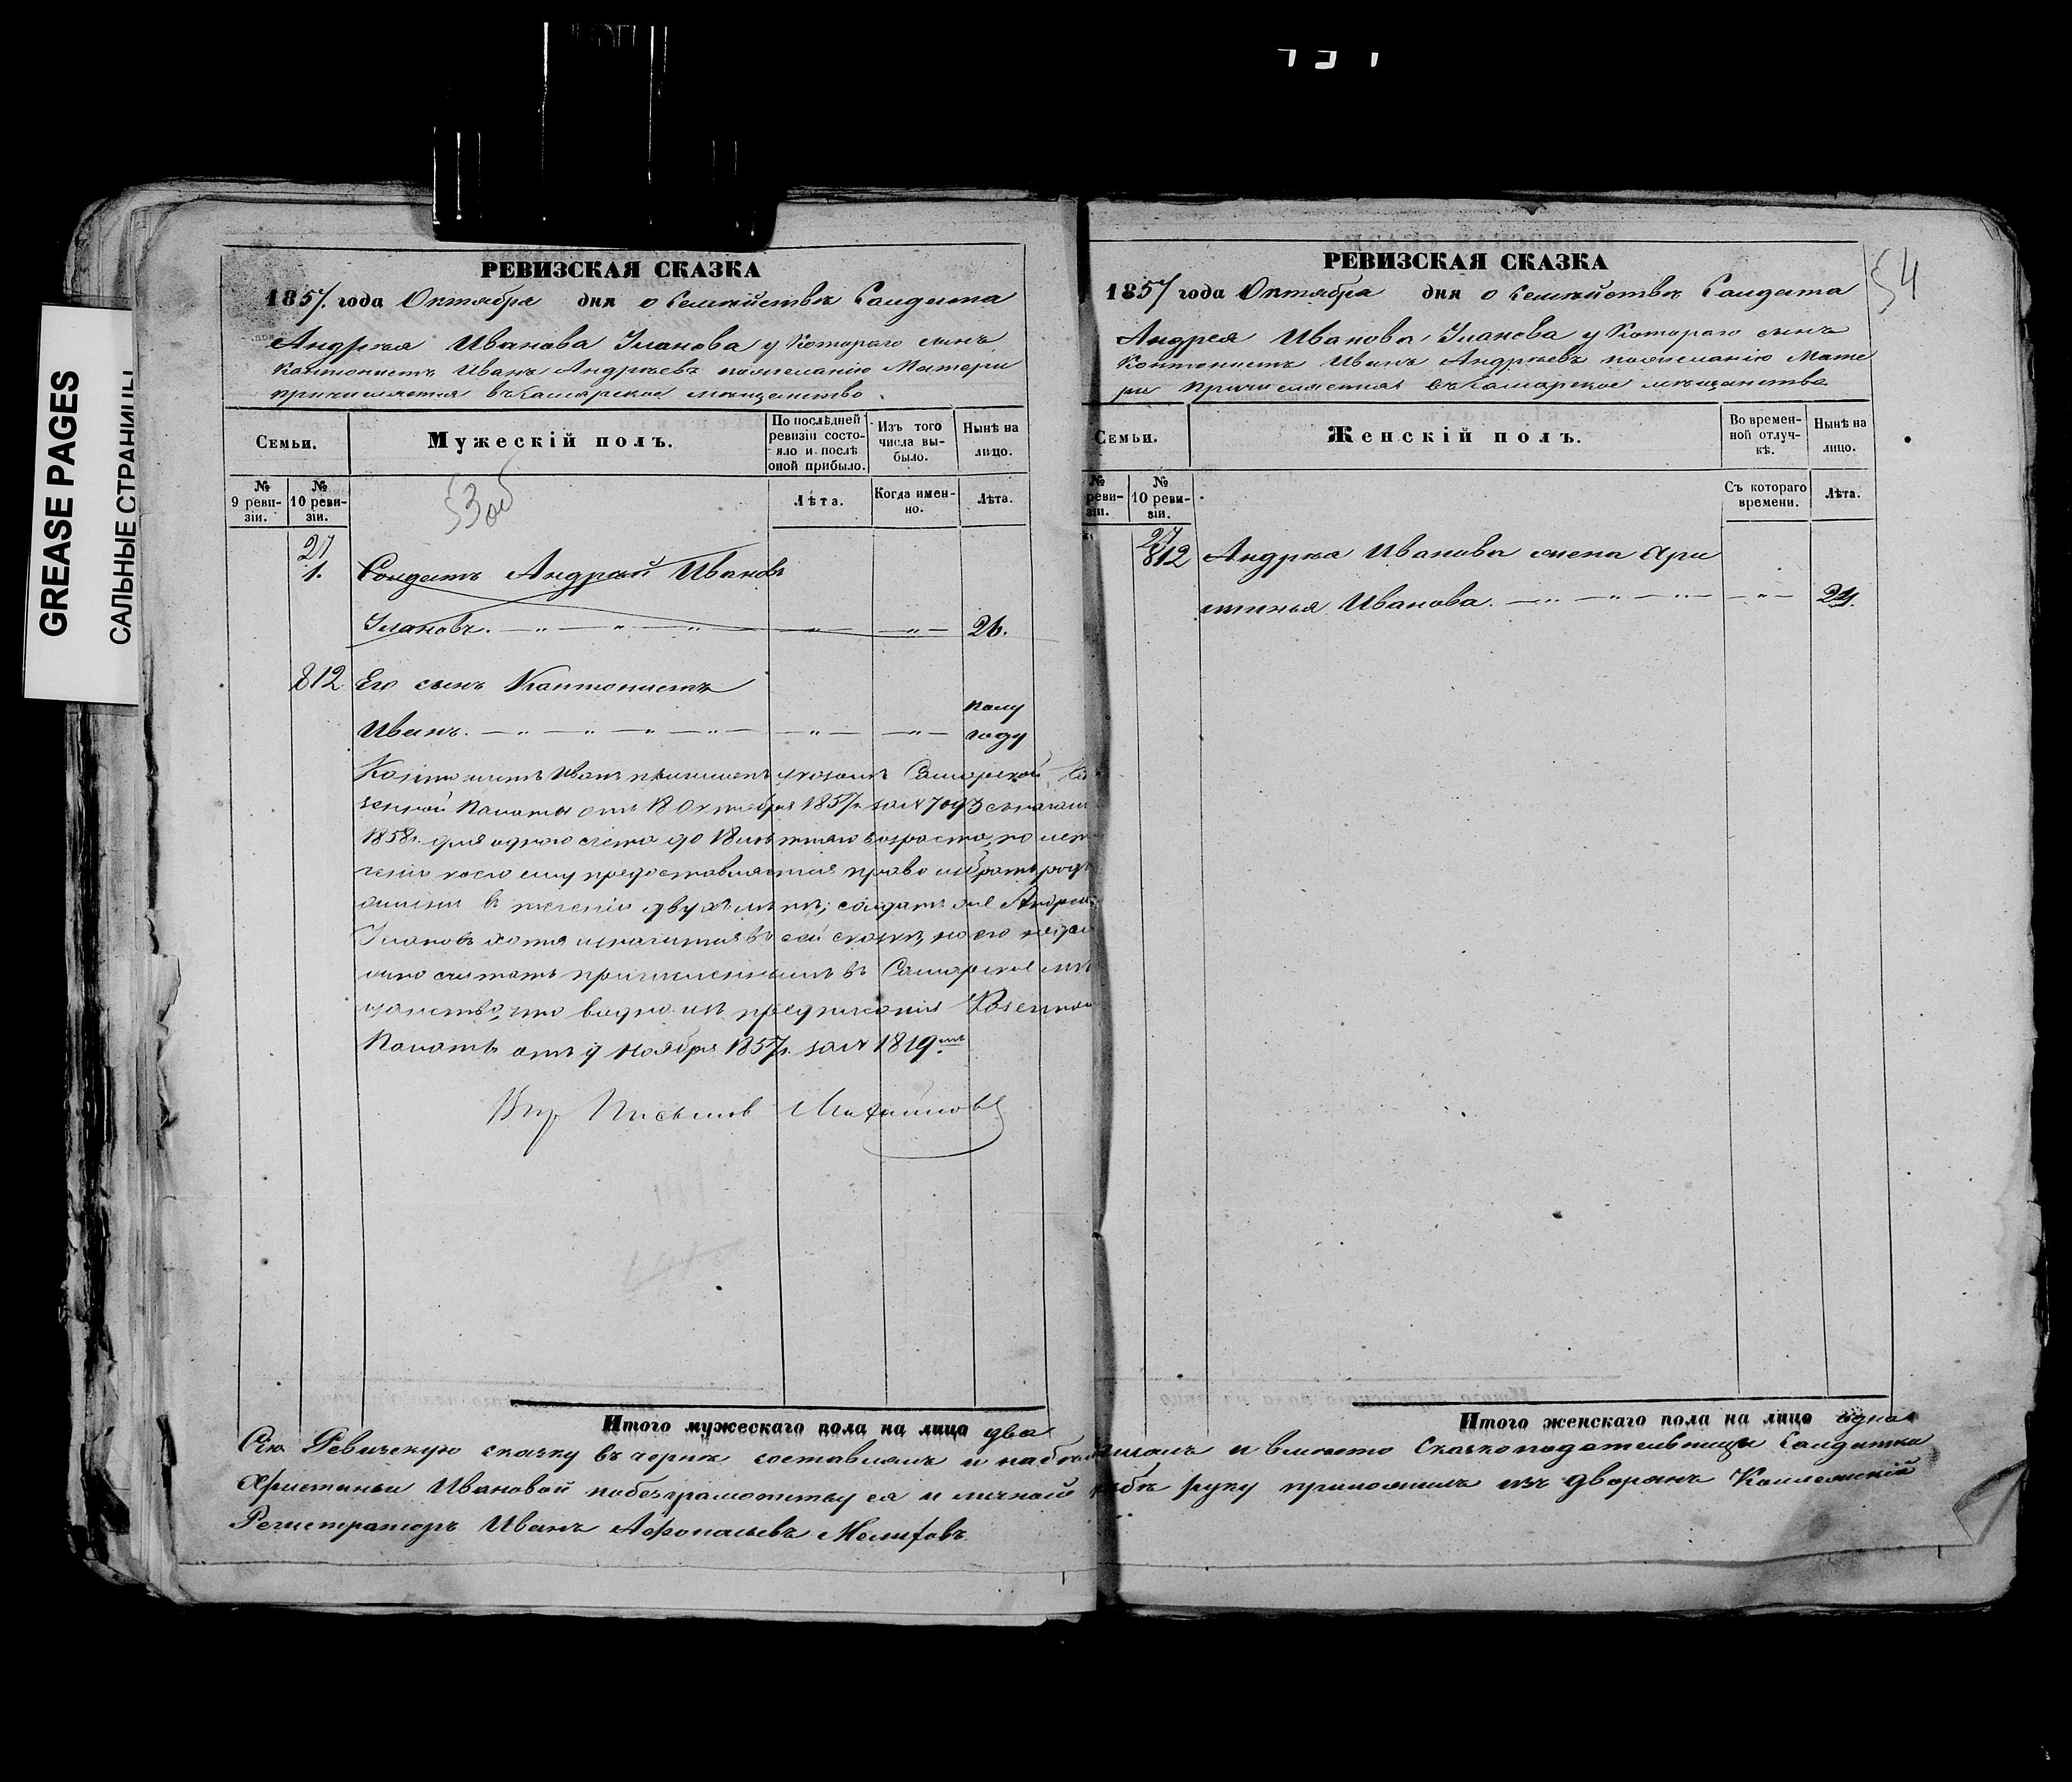 GREASE PAGES
САЛЬНЫЕ СТРАНИЦЫ
РЕВИЗСКАЯ СКАЗКА
1857. года Октября дня о Семействѣ Солдата
Андрея Иванова Уланова у Котораго сынъ
Кантонистъ Иванъ Андреевъ пожеланію Матери
причисляется въ Самарское мѣщанство.
Семьи.
Мужескій полъ.
По послѣдней ревизіи состояло и послѣ оной прибыло.
Изъ того числа выбыло.
Нынѣ на лицо.
№ 9 ревизіи.
№ 10 ревизіи.
53 об
Лѣта.
Когда именно.
Лѣта.
27
1. Солдатъ Андрей Ивановъ
Улановъ. 26.
812 Его сынъ Кантонистъ
полу
Иванъ. году
Кантонистъ Иванъ причисленъ указомъ Самарской Ка
зенной Палаты отъ 18 Октября 1857г. за № 7093 съ начала
1858г. для одного счета до 18 лѣтняго возраста, по исте
ченіи коего ему предоставляется право избрать родъ
жизни в теченіи двухъ лѣтъ; солдатъ же Андрей
Улановъ хотя и значится въ сей сказкѣ, но его не
считать причисленнымъ въ Самарское мѣ
щанство, что видно изъ предписанія Казенной
Палаты отъ 9 Ноября 1857г. за № 1819.
Письмов Михайловъ
Итого мужескаго пола на лицо два
РЕВИЗСКАЯ СКАЗКА
54
1857 года Октября дня о Семействѣ Солдата
Андрея Иванова Уланова у Котораго сынъ
Кантонистъ Иванъ Андреевъ пожеланію Мате
ри Причисляется въ Самарское мѣщанство
Семьи.
Женскій полъ.
Во временной отлучкѣ.
Нынѣ на лицо.
№ ревизіи.
№ 10 ревизіи.
Съ котораго времени.
Лѣта.
27
812 Андрея Иванова жена Хри
стинья Иванова. 24.
Итого женскаго пола на лицо одна
Сію Ревизскую сказку въ чернѣ составлялъ и набѣло и вмѣсто Сказкоподательницы Солдатки
Христиньи Ивановой по безграмотству ея и личной прозьбѣ руку приложилъ изъ дворянъ Коллежскій
Регистраторъ Иванъ Афонасьевъ